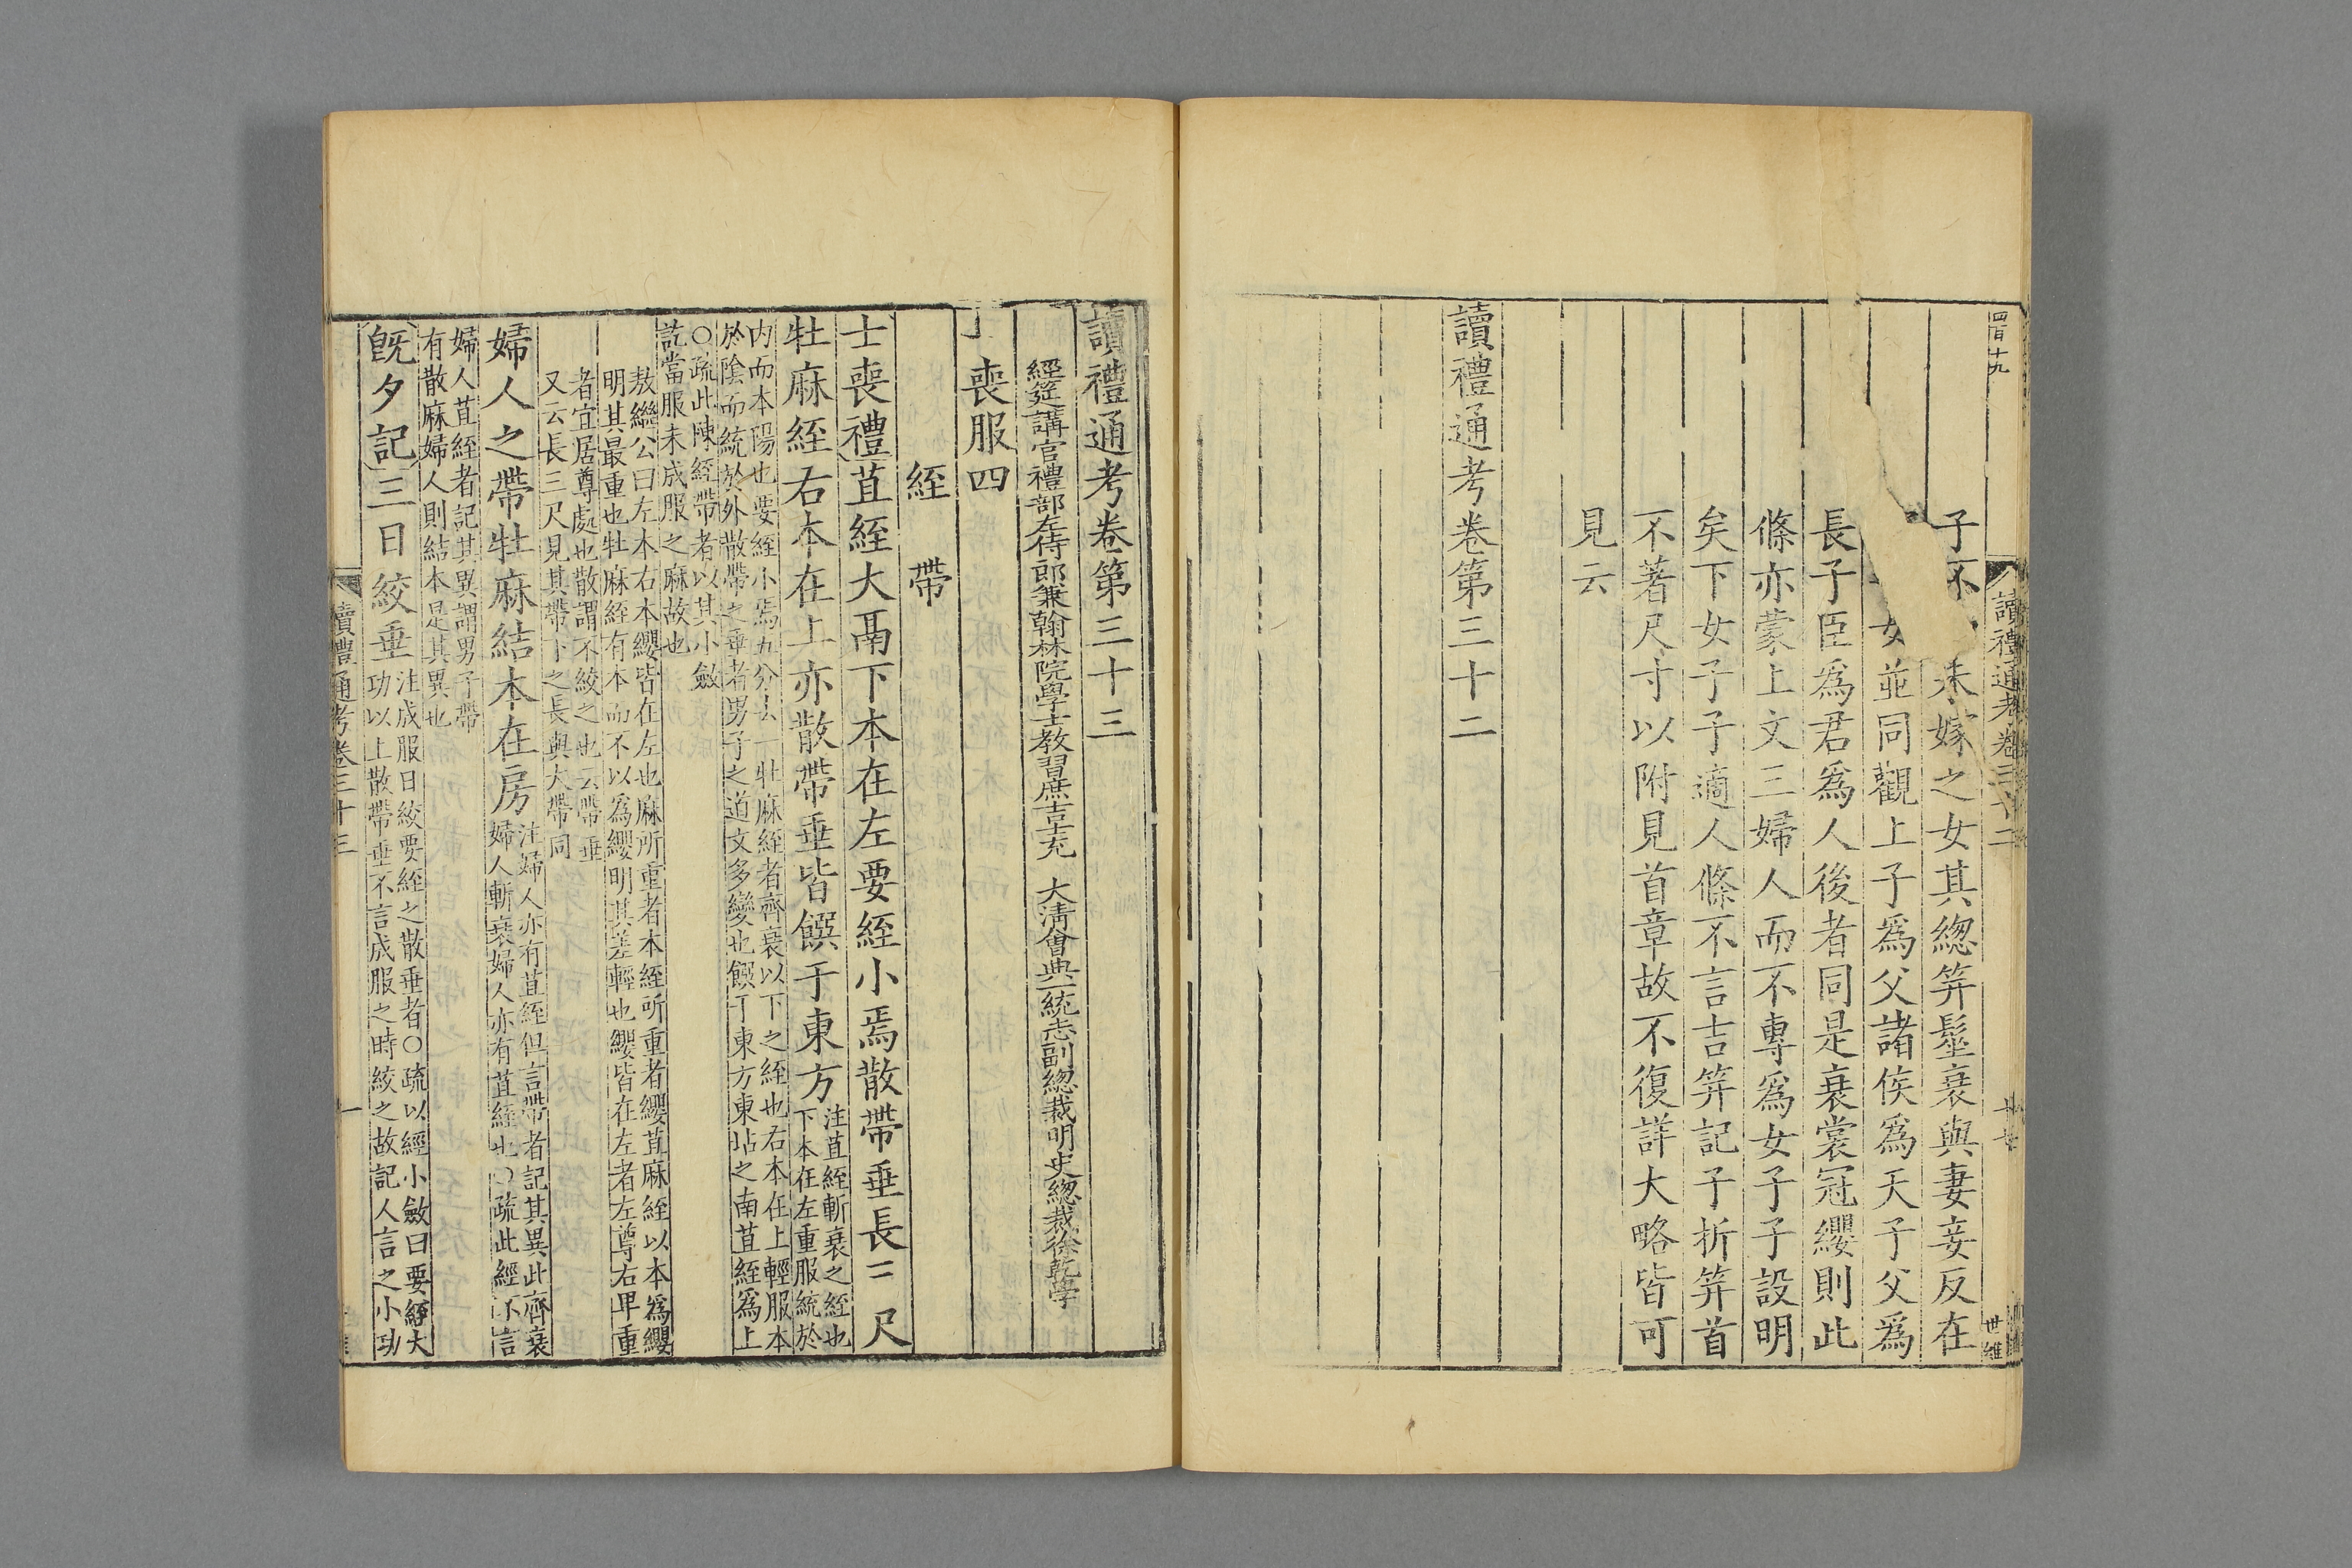 四百十九
讀禮通考卷三十二
世維
子不　未嫁之女其緦笄髽衰與妻妾反在
女並同觀上子爲父諸侯爲天子父爲
長子臣爲君爲人後者同是衰裳冠纓則此
條亦蒙上文三婦人而不專爲女子子設明
矣下女子子適人條不言吉笄記子折笄首
不著尺寸以附見首章故不復詳大略皆可
見云
讀禮通考卷第三十二
讀禮通考卷第三十三
經筵講官禮部左侍郎兼翰林院學士教習庶吉士充　大清會典一統志副總裁明史總裁徐乾學
喪服四
絰　帶
士喪禮苴絰大鬲下本在左要絰小焉散帶垂長三尺
牡麻絰右本在上亦散帶垂皆饌于東方
注苴絰斬衰之絰也
下本在左重服統於
内而本陽也要絰小焉五分去一牡麻絰者齊衰以下之絰也右本在上輕服本
於陰而統於外散帶之垂者男子之道文多變也饌于東方東坫之南苴絰爲上
○疏此陳絰帶者以其小斂
訖當服未成服之麻故也
敖繼公曰左本右本纓皆在左也麻所重者本絰所重者纓苴麻絰以本爲纓
明其最重也牡麻絰有本而不以爲纓明其差輕也纓皆在左者左尊右卑重
者宜居尊處也散謂不絞之也云帶垂
又云長三尺見其帶下之長與大帶同
婦人之帶牡麻結本在房
注婦人亦有苴絰但言帶者記其異此齊衰
婦人斬衰婦人亦有苴絰也○疏此經不言
婦人苴絰者記其異謂男子帶
有散麻婦人則結本是其異也
既夕記三日絞垂
注成服日絞要絰之散垂者○疏以經小斂日要絰大
功以上散帶垂不言成服之時絞之故記人言之小功
讀禮通考卷三十三
一